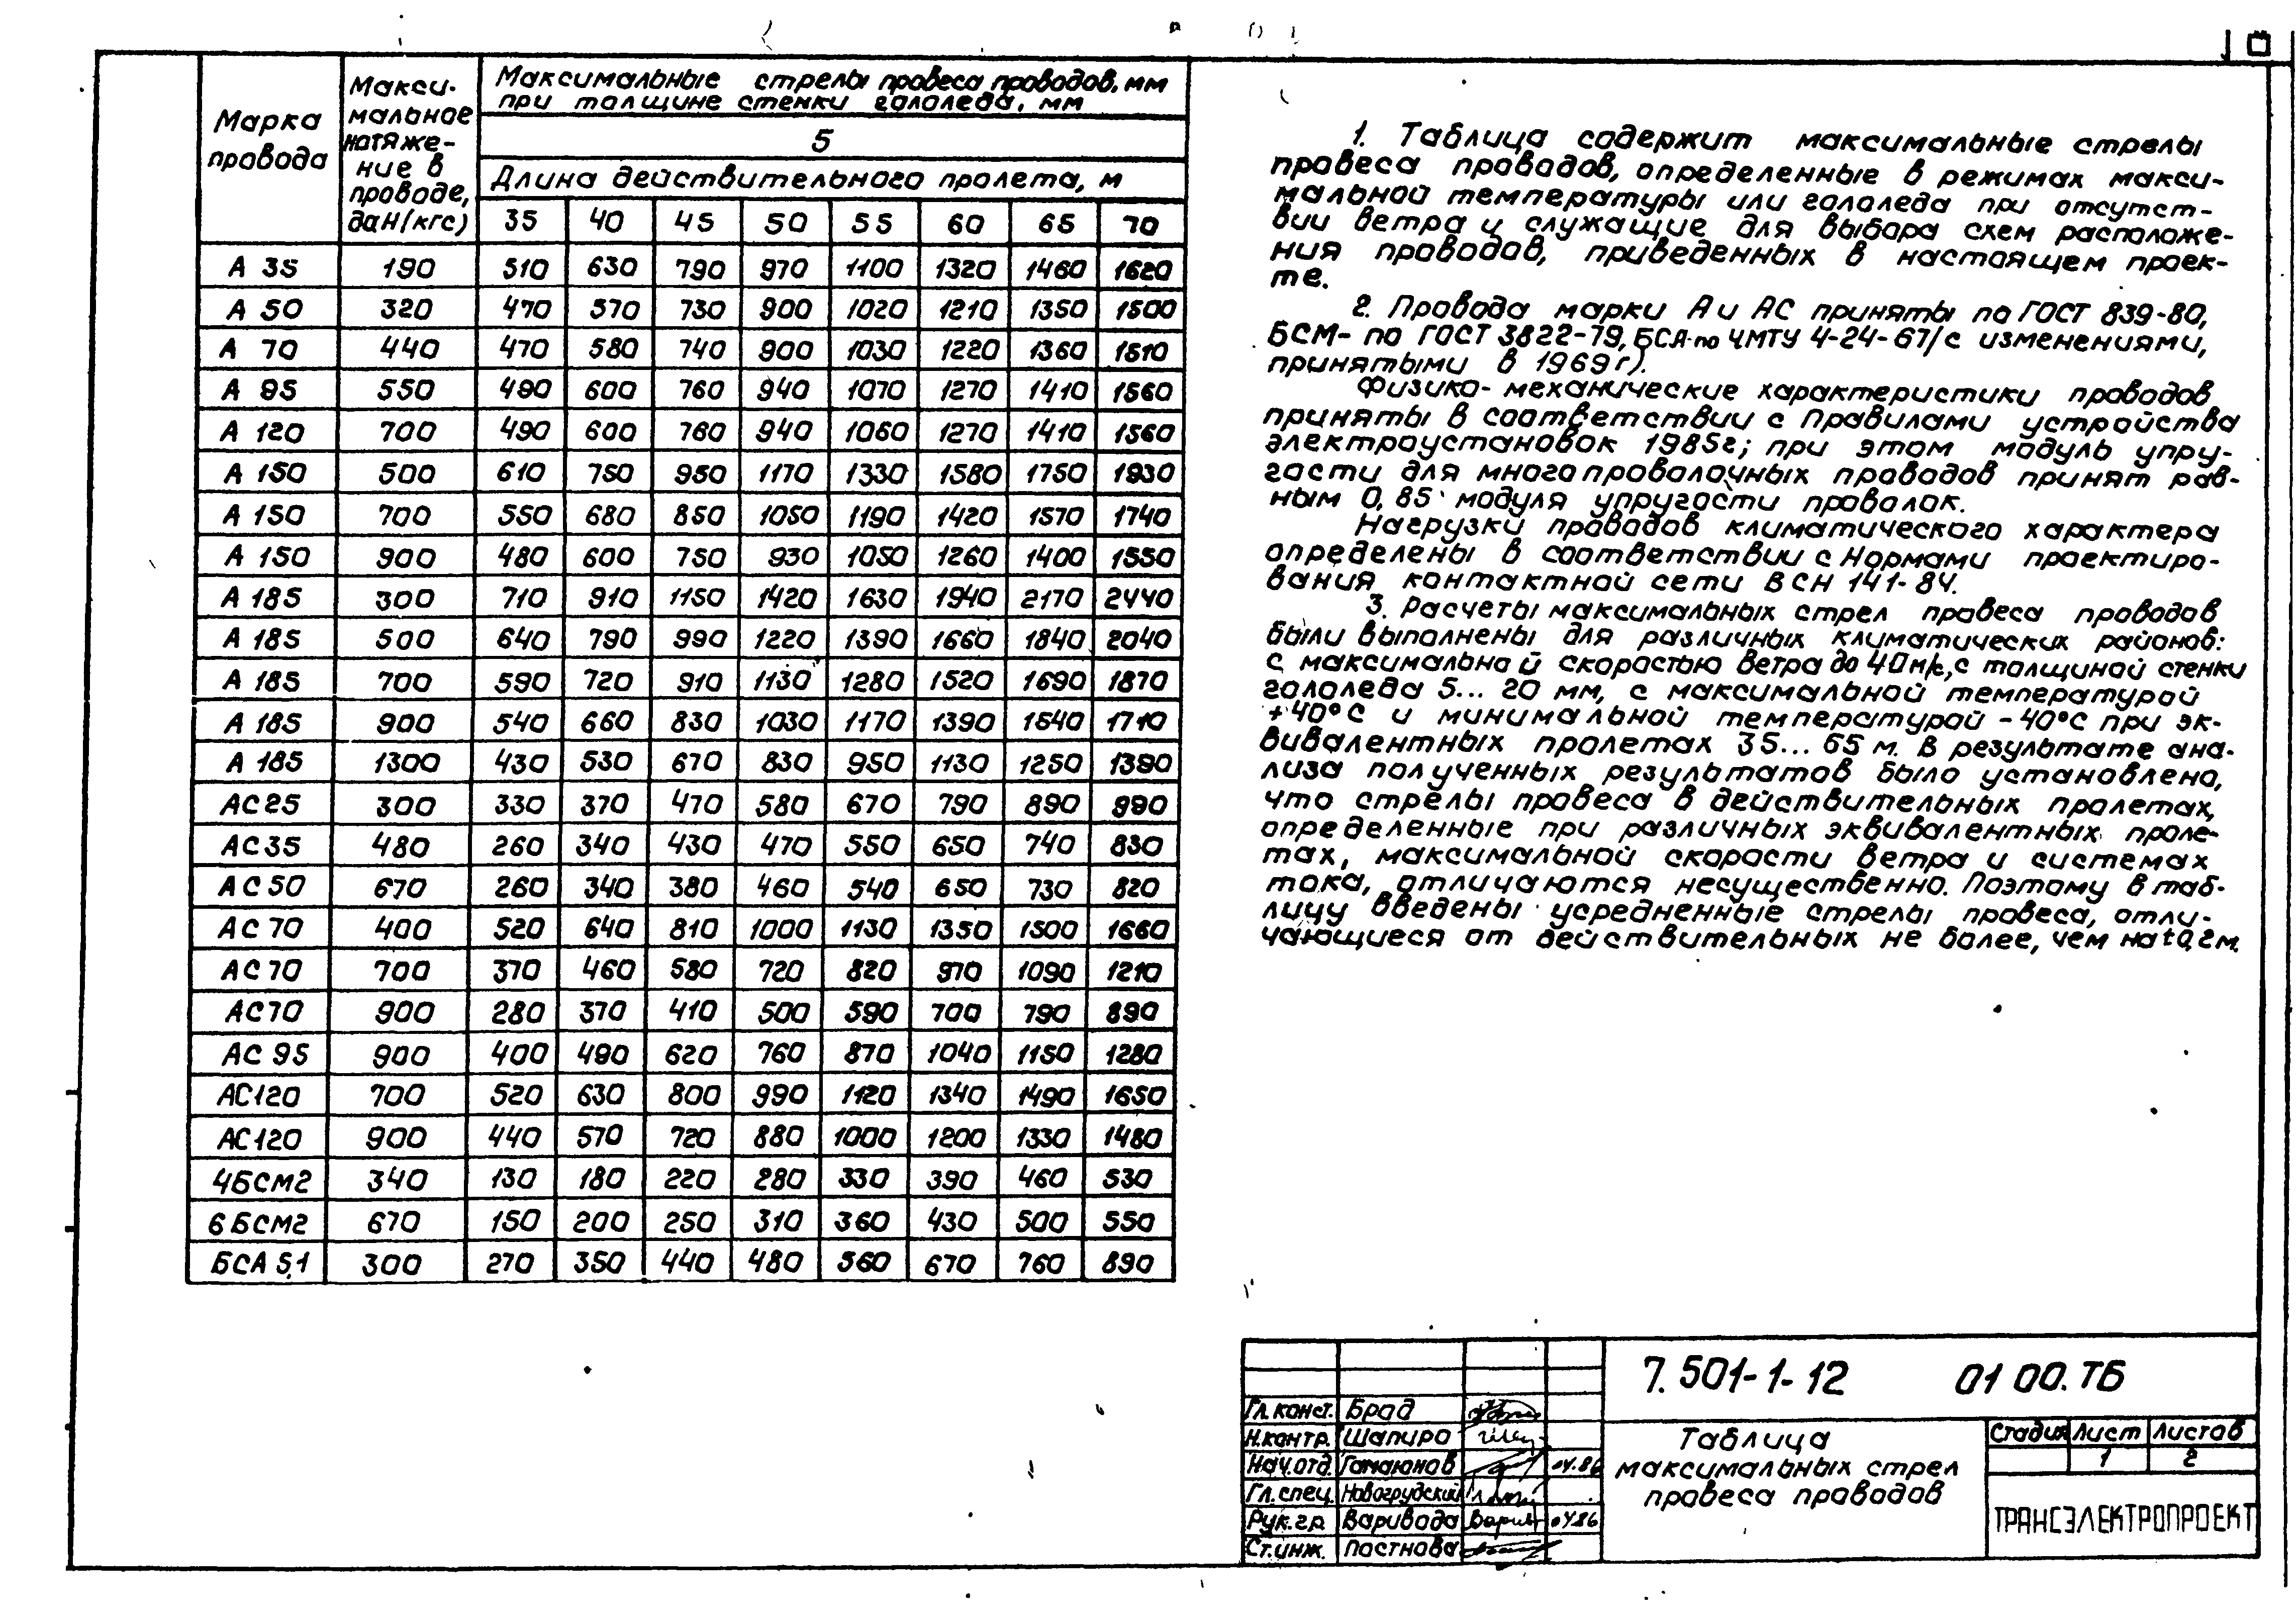 Марка провода | Макси-мальное натяже-ние в проводе, даН/(кгс) | Максимальные стрелы провеса проводов, мм при толщине стенки гололеда, мм
5
Длина действительного пролета, м
35 40 45 50 55 60 65 70
А 35 190 510 630 790 970 1100 1320 1460 1620
А 50 320 470 570 730 900 1020 1210 1350 1500
А 70 440 470 580 740 900 1030 1220 1360 1510
А 95 550 490 600 760 940 1070 1270 1410 1560
А 120 700 490 600 760 940 1060 1270 1410 1560
А 150 500 610 750 950 1170 1330 1580 1750 1930
А 150 700 550 680 850 1050 1190 1420 1570 1740
А 150 900 480 600 750 930 1050 1260 1400 1550
А 185 300 710 910 1150 1420 1630 1940 2170 2440
А 185 500 640 790 990 1220 1390 1660 1840 2040
А 185 700 590 720 910 1130 1280 1520 1690 1870
А 185 900 540 660 830 1030 1170 1390 1540 1710
А 185 1300 430 530 670 830 950 1130 1250 1390
АС25 300 330 370 470 580 670 790 890 990
АС35 480 260 340 430 470 550 650 740 830
АС50 670 260 340 380 460 540 650 730 820
АС 70 400 520 640 810 1000 1130 1350 1500 1660
АС 70 700 370 460 580 720 820 970 1090 1210
АС70 900 280 370 410 500 590 700 790 890
АС 95 900 400 490 620 760 870 1040 1150 1280
АС120 700 520 630 800 990 1120 1340 1490 1650
АС120 900 440 570 720 880 1000 1200 1330 1480
4БСМ2 340 130 180 220 280 330 390 460 530
6БСМ2 670 150 200 250 310 360 430 500 550
БСА 5,1 300 270 350 440 480 560 670 760 890
1. Таблица содержит максимальные стрелы
провеса проводов, определенные в режимах макси-
мальной температуры или гололеда при отсутст-
вии ветра и служащие для выбора схем расположе-
ния проводов, приведенных в настоящем проек-
те.
2. Провода марки А и АС приняты по ГОСТ 839-80,
БСМ- по ГОСТ 3822-79, БСА-по ЧМТУ 4-24-67/с изменениями,
принятыми в 1969г).
Физико-механические характеристики проводов
приняты в соответствии с Правилами устройства
электроустановок 1985г; при этом модуль упру-
гости для многопроволочных проводов принят рав-
ным 0,85 модуля упругости проволок.
Нагрузки проводов климатического характера
определены в соответствии с Нормами проектиро-
вания контактной сети ВСН 141-84.
3. Расчеты максимальных стрел провеса проводов
были выполнены для различных климатических районов:
с максимальной скоростью ветра до 40м/с, с толщиной стенки
гололеда 5... 20 мм, с максимальной температурой
+40°С и минимальной температурой -40°С при эк-
вивалентных пролетах 35... 65 м. В результате ана-
лиза полученных результатов было установлено,
что стрелы провеса в действительных пролетах,
определенные при различных эквивалентных проле-
тах, максимальной скорости ветра и системах
тока, отличаются несущественно. Поэтому в таб-
лицу введены усредненные стрелы провеса, отли-
чающиеся от действительных не более, чем на ±0,2м.
7.501-1-12 01 00.ТБ
Гл.конст. Брад
Н.контр. Шапиро
Нач.отд. Гамаюнов 04.86
Гл.спец. Новогрудский
Рук.гр. Варивода 04.86
Ст.инж. Постнова
Таблица
максимальных стрел
провеса проводов
Стадия Лист Листов
1 2
ТРАНСЭЛЕКТРОПРОЕКТ